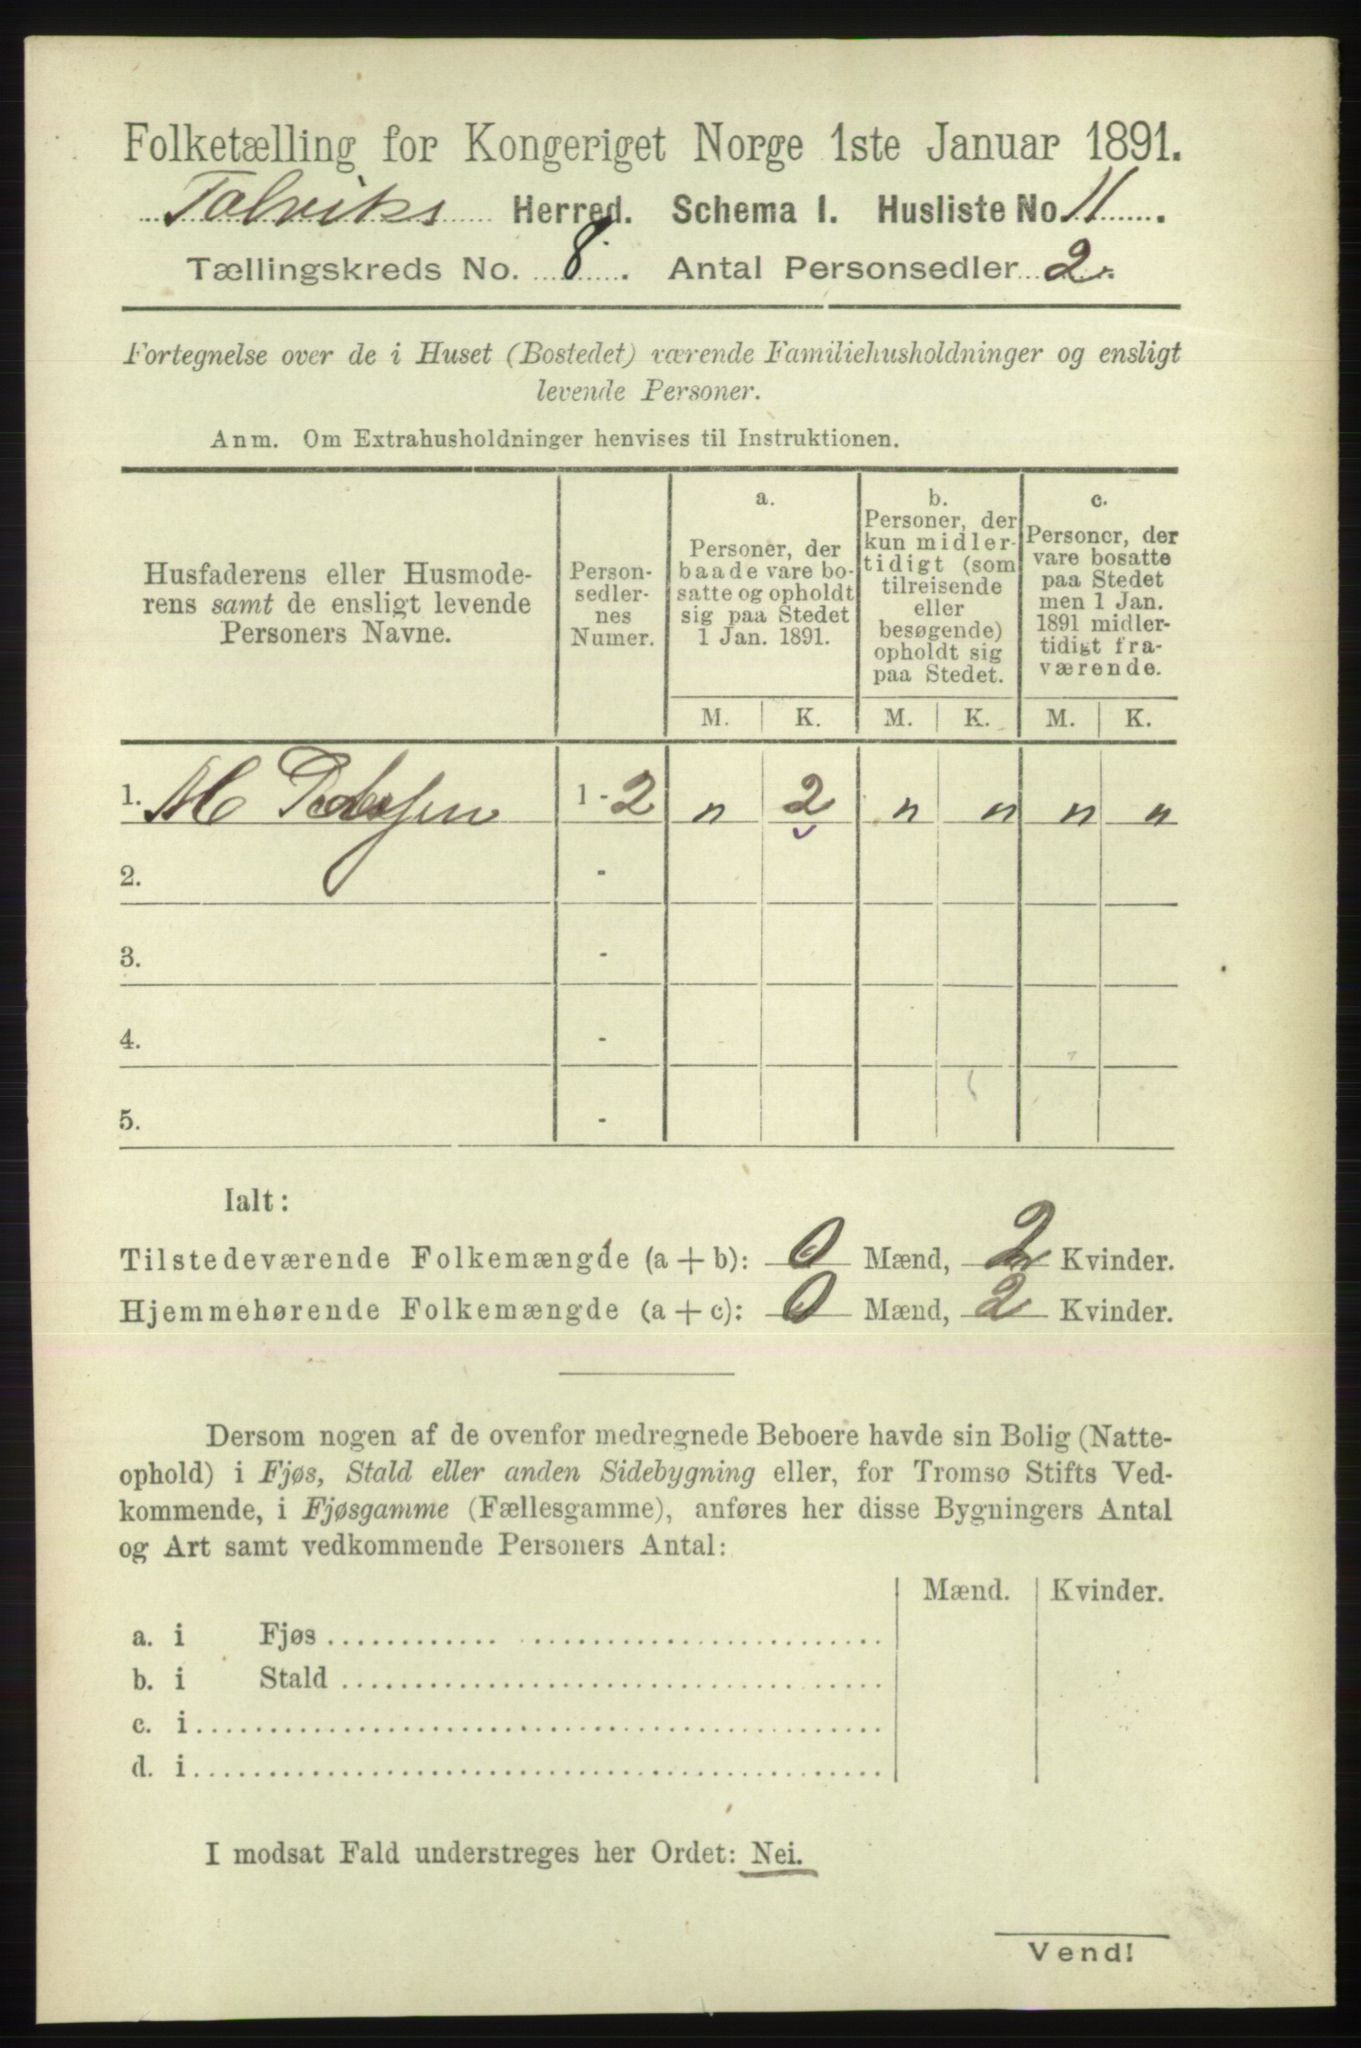 Folketælling for Kongeriget Norge 1ste Januar 1891.
Talviks Herred. Schema I. Husliste No 11.
Tællingskreds No. 8. Antal Personsedler 2.
Fortegnelse over de i Huset (Bostedet) værende Familiehusholdninger og ensligt
levende Personer.
Anm. Om Extrahusholdninger henvises til Instruktionen.
Husfaderens eller Husmode-
rens samt de ensligt levende
Personers Navne.
Person-
sedler-
nes
Numer.
a.
Personer, der
baade vare bo-
satte og opholdt
sig paa Stedet
1 Jan. 1891.
b.
Personer, der
kun midler-
tidigt (som
tilreisende
eller
besøgende)
opholdt sig
paa Stedet.
c.
Personer, der
vare bosatte
paa Stedet
men 1 Jan.
1891 midler-
tidigt fra-
værende.
M. K. M. K. M. K.
1. M Pedersen 1 - 2 " 2 " " " "
2. -
3. -
4. -
5. -
Ialt:
Tilstedeværende Folkemængde (a + b): 0 Mænd, 2 Kvinder.
Hjemmehørende Folkemængde (a + c): 0 Mænd, 2 Kvinder.
Dersom nogen af de ovenfor medregnede Beboere havde sin Bolig (Natte-
ophold) i Fjøs, Stald eller anden Sidebygning eller, for Tromsø Stifts Ved-
kommende, i Fjøsgamme (Fællesgamme), anføres her disse Bygningers Antal
og Art samt vedkommende Personers Antal:
Mænd. Kvinder.
a. i Fjøs
b. i Stald
c. i
d. i
I modsat Fald understreges her Ordet: Nei.
Vend!